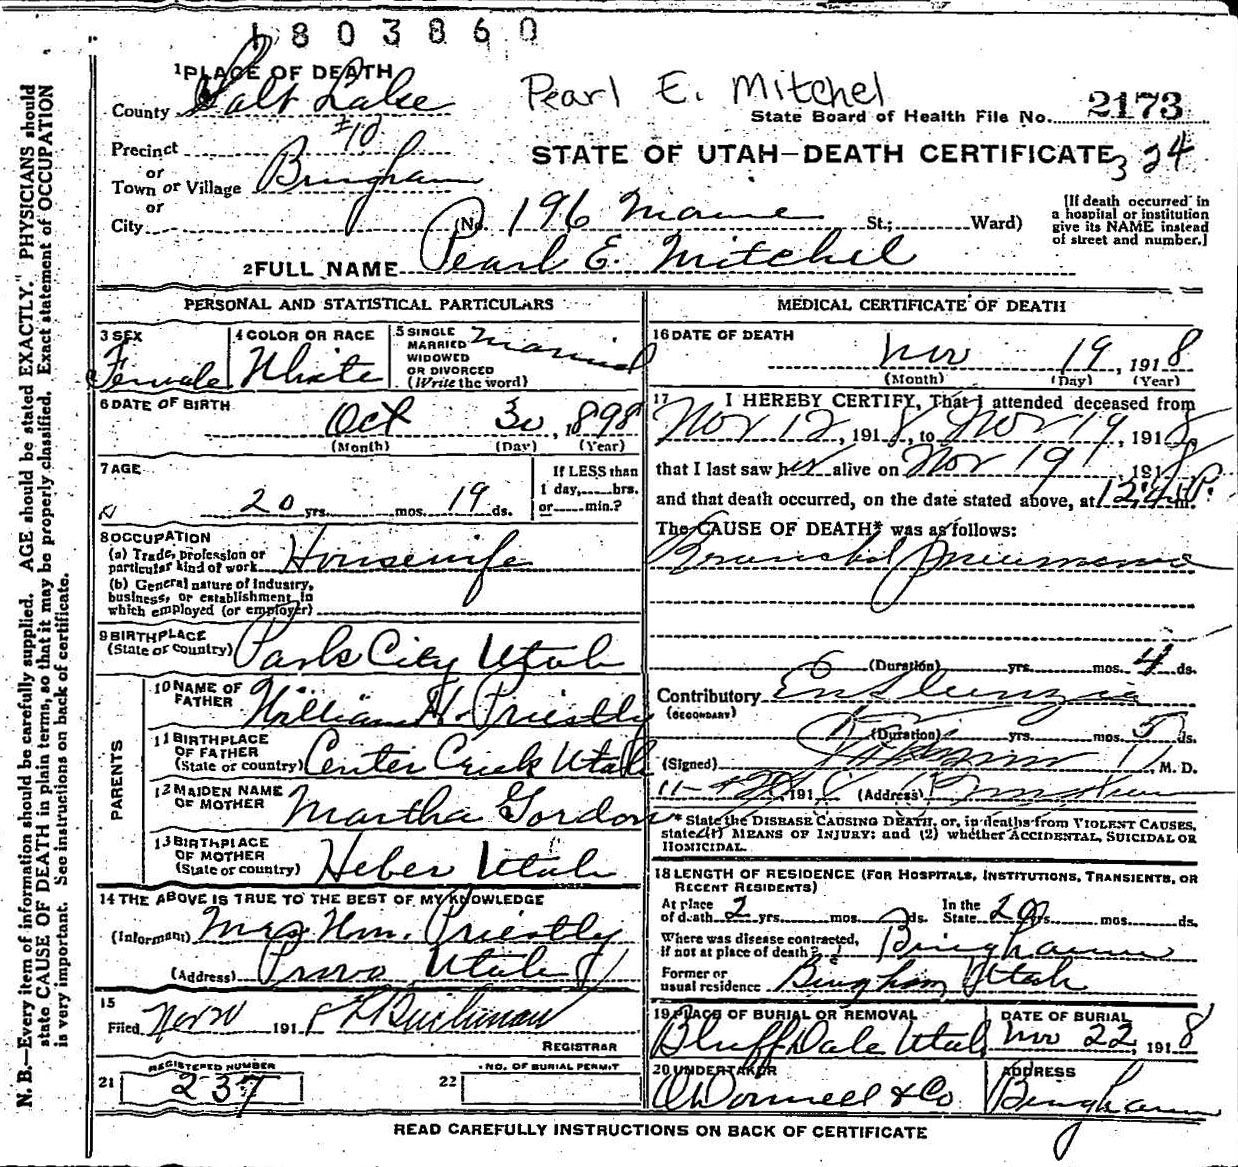 1803860
1 PLACE OF DEATH
Pearl E. Mitchel
County Salt Lake
State Board of Health File No. 2173
Precinct #10
STATE OF UTAH—DEATH CERTIFICATE 324
or
Town or Village Bingham
or
City (No. 196 Maine St.; Ward)
[If death occurred in
a hospital or institution
give its NAME instead
of street and number.]
2 FULL NAME Pearl E. Mitchel
PERSONAL AND STATISTICAL PARTICULARS
3 SEX Female
4 COLOR OR RACE White
5 SINGLE
MARRIED
WIDOWED
OR DIVORCED
(Write the word) Married
6 DATE OF BIRTH
Oct 30, 1898
(Month) (Day) (Year)
7 AGE
20 yrs. mos. 19 ds.
If LESS than
1 day, hrs.
or min.?
8 OCCUPATION
(a) Trade, profession or
particular kind of work Housewife
(b) General nature of industry,
business, or establishment in
which employed (or employer)
9 BIRTHPLACE
(State or country) Park City Utah
PARENTS
10 NAME OF
FATHER William H. Priestly
11 BIRTHPLACE
OF FATHER
(State or country) Center Creek Utah
12 MAIDEN NAME
OF MOTHER Martha Gordon
13 BIRTHPLACE
OF MOTHER
(State or country) Heber Utah
14 THE ABOVE IS TRUE TO THE BEST OF MY KNOWLEDGE
(Informant) Mrs Wm. Priestly
(Address) Provo Utah
15
Filed Nov 20 191
REGISTRAR
21 REGISTERED NUMBER
237
22 NO. OF BURIAL PERMIT
MEDICAL CERTIFICATE OF DEATH
16 DATE OF DEATH
Nov 19, 1918
(Month) (Day) (Year)
17 I HEREBY CERTIFY, That I attended deceased from
Nov 12, 1918, to Nov 19, 1918
that I last saw her alive on Nov 19, 1918
and that death occurred, on the date stated above, at P.m.
The CAUSE OF DEATH* was as follows:
Bronchial Pneumonia
(Duration) yrs. mos. 4 ds.
Contributory Enfluenzia
(SECONDARY)
(Duration) yrs. mos. 5 ds.
(Signed) M. D.
191 (Address)
* State the DISEASE CAUSING DEATH, or, in deaths from VIOLENT CAUSES,
state (1) MEANS OF INJURY; and (2) whether ACCIDENTAL, SUICIDAL OR
HOMICIDAL.
18 LENGTH OF RESIDENCE (FOR HOSPITALS, INSTITUTIONS, TRANSIENTS, OR
RECENT RESIDENTS)
At place
of death 2 yrs. mos. ds.
In the
State 20 yrs. mos. ds.
Where was disease contracted,
if not at place of death? Bingham
Former or
usual residence Bingham Utah
19 PLACE OF BURIAL OR REMOVAL
Bluff Dale Utah
DATE OF BURIAL
Nov 22, 1918
20 UNDERTAKER
O'Donnell & Co
ADDRESS
Bingham
READ CAREFULLY INSTRUCTIONS ON BACK OF CERTIFICATE
N. B.—Every item of information should be carefully supplied. AGE should be stated EXACTLY. PHYSICIANS should
state CAUSE OF DEATH in plain terms, so that it may be properly classified. Exact statement of OCCUPATION
is very important. See instructions on back of certificate.